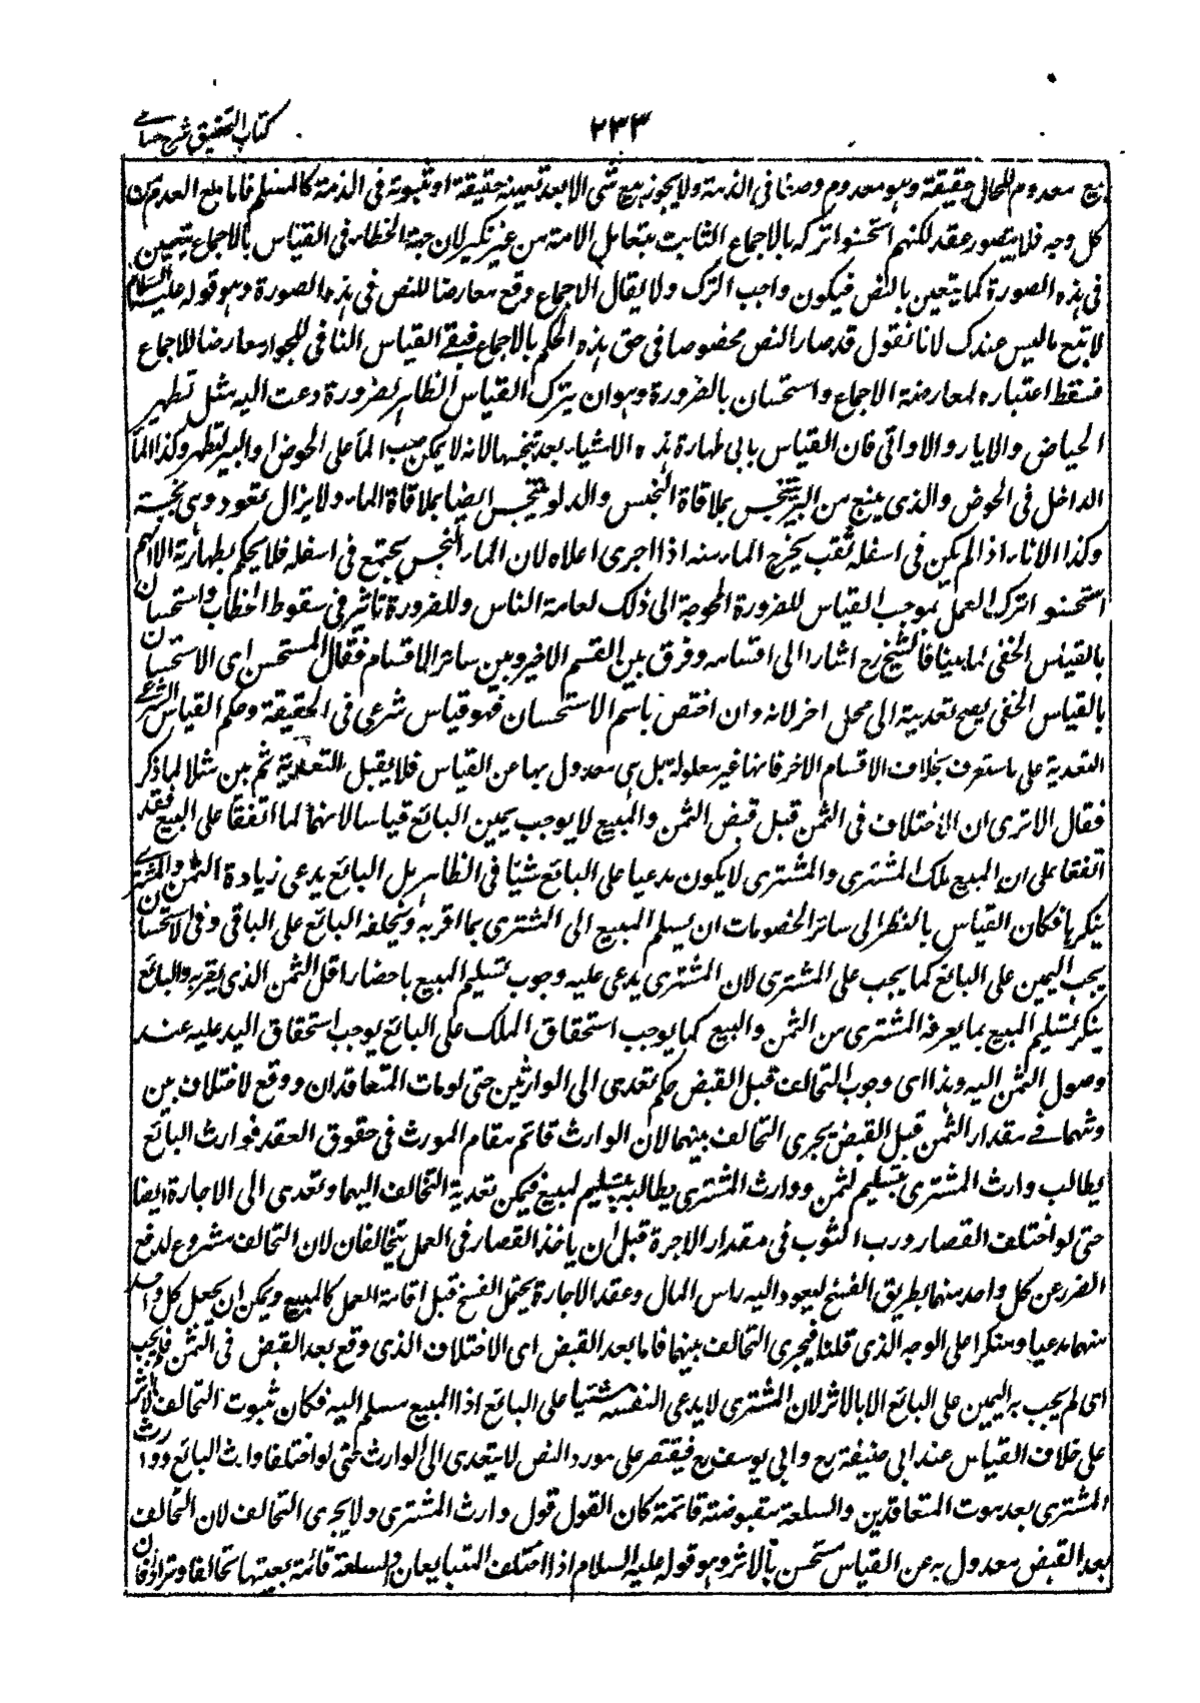 كتاب التحقيق شرح حسامى
٢٣٣
بيع معدوم للحال حقيقة وهو معدوم وصفا فى الذمة ولا يجوز بيع شئ الا بعد تعينه حقيقة او ثبوته فى الذمة كالسلم فاما مع العدم من
كل وجه فلا يتصور عقد لكنهم استحسنوا تركه بالاجماع الثابت بتعامل الامة من غير نكير لان جهة الخطاء فى القياس بالاجماع يتعين
فى هذه الصورة كما يتعين بالنص فيكون واجب الترك ولا يقال الاجماع وقع معارضا للنص فى هذه الصورة وهو قوله عليه السلام
لا تبع ماليس عندك لانا نقول قد صار النص مخصوصا فى حق هذه الحكم بالاجماع فبقى القياس النافى للجواز معارضا للاجماع
فسقط اعتباره لمعارضة الاجماع واستحسان بالضرورة وهو ان يترك القياس الظاهر لضرورة دعت اليه مثل تطهير
الحياض والابار والاوانى فان القياس يابى طهارة هذه الاشياء بعد تنجسها لانه لا يمكن صب الماء على الحوض والبير لتطهر وكذا الماء
الداخل فى الحوض والذى ينبع من البير يتنجس بملاقاة النجس والدلو يتنجس ايضا بملاقاة الماء ولا يزال تعود وهى نجسة
وكذا الاناء اذا لم يكن فى اسفله ثقب يخرج الماء منه اذا اجرى اعلاه لان الماء النجس يجتمع فى اسفله فلا يحكم بطهارته الا انهم
استحسنوا ترك العمل بموجب القياس للضرورة المحوجة الى ذلك لعامة الناس وللضرورة تاثير فى سقوط الخطاب واستحسان
بالقياس الخفى لما بينا فالشيخ رح اشار الى اقسامه وفرق بين القسم الاخير وبين سائر الاقسام فقال المستحسن اى الاستحسان
بالقياس الخفى يصح تعديته الى محل اخر لانه وان اختص باسم الاستحسان فهو قياس شرعى فى الحقيقة وحكم القياس الشرعى
التعدية على ما ستعرف بخلاف الاقسام الاخر فانها غير معلولة بل هى معدول بها عن القياس فلا يقبل التعدية ثم بين مثلا لما ذكر
فقال الا ترى ان الاختلاف فى الثمن قبل قبض الثمن والمبيع لا يوجب يمين البائع قياسا لانهما لما اتفقا على البيع فقد
اتفقا على ان المبيع ملك المشترى والمشترى لا يكون مدعيا على البائع شيئا فى الظاهر بل البائع يدعى زيادة الثمن والمشترى
ينكرها فكان القياس بالنظر الى سائر الخصومات ان يسلم المبيع الى المشترى بما اقر به ويحلفه البائع على الباقى وفى الاستحسان
يجب اليمين على البائع كما يجب على المشترى لان المشترى يدعى عليه وجوب تسليم المبيع باحضار اقل الثمن الذى يقر به والبائع
ينكر تسليم المبيع بما يعرفه المشترى من الثمن والبيع كما يوجب استحقاق الملك على البائع يوجب استحقاق اليد عليه عند
وصول الثمن اليه وهذا اى وجوب التحالف قبل القبض حكم تعدى الى الوارثين حتى لو مات المتعاقدان ووقع الاختلاف بين
ورثتهما فى مقدار الثمن قبل القبض يجرى التحالف بينهما لان الوارث قائم مقام المورث فى حقوق العقد فوارث البائع
يطالب وارث المشترى بتسليم الثمن ووارث المشترى يطالبه بتسليم المبيع فيمكن تعدية التحالف اليهما وتعدى الى الاجارة ايضا
حتى لو اختلف القصار ورب الثوب فى مقدار الاجرة قبل ان ياخذ القصار فى العمل يتحالفان لان التحالف مشروع لدفع
الضرر عن كل واحد منهما بطريق الفسخ ليعود اليه راس المال وعقد الاجارة يحتمل الفسخ قبل اقامة العمل كالبيع ويمكن ان يجعل كل واحد
منهما مدعيا ومنكرا على الوجه الذى قلنا فيجرى التحالف بينهما فاما بعد القبض اى الاختلاف الذى وقع بعد القبض فى الثمن فلم يجب
اى لم يجب به اليمين على البائع الا بالاثر لان المشترى لا يدعى لنفسه شيئا على البائع اذ المبيع مسلم اليه فكان ثبوت التحالف بالاثر
على خلاف القياس عند ابى حنيفة رح وابى يوسف رح فيقتصر على مورد النص لا يتعدى الى الوارث حتى لو اختلفا وارث البائع ووارث
المشترى بعد موت المتعاقدين والسلعة مقبوضة قائمة كان القول قول وارث المشترى ولا يجرى التحالف لان التحالف
بعد القبض معدول به عن القياس مستحسن بالاثر وهو قوله عليه السلام اذا اختلف المتبايعان والسلعة قائمة بعينها تحالفا وترادا فان